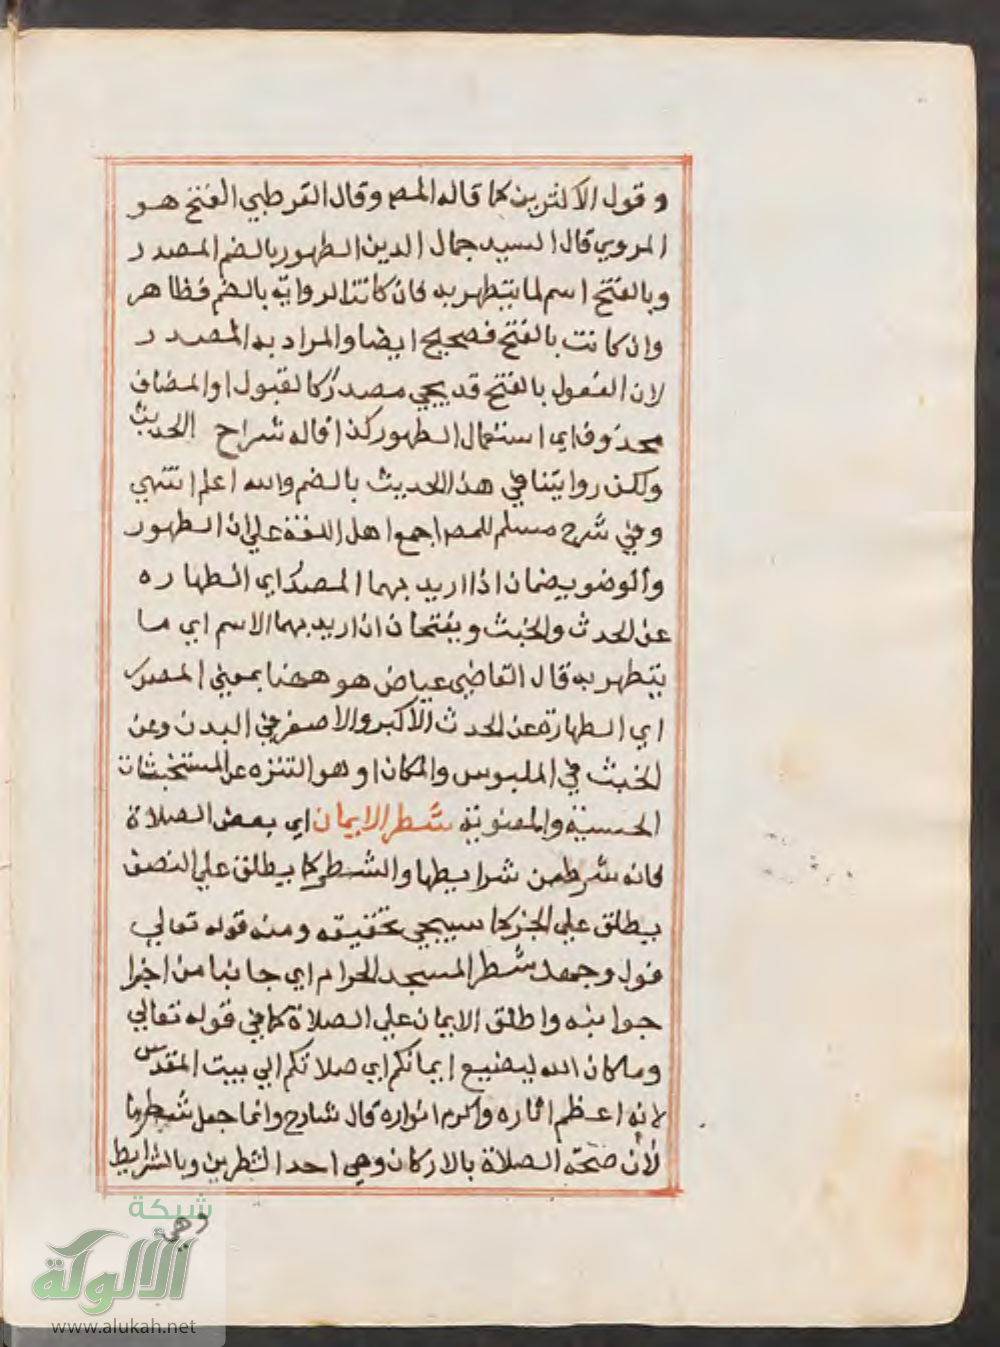 و قول الاكثرين كما قاله المص وقال القرطبي الفتح هو
المروي قال السيد جمال الدين الطهور بالضم المصدر
وبالفتح اسم لما يتطهر به فان كانت الرواية بالضم فظاهر
وان كانت بالفتح فصحيح ايضا والمراد به المصدر
لان الفعول بالفتح قد يجي مصدر كالقبول او المضاف
محذوف اي استعمال الطهور كذا قاله شراح الحديث
ولكن روايتنا في هذا الحديث بالضم والله اعلم انتهي
وفي شرح مسلم للمص اجمع اهل اللغة علي ان الطهور
والوضو يضمان اذا اريد بهما المصدر اي الطهاره
عن الحدث والخبث ويفتحان ان اريد بهما الاسم اي ما
يتطهر به قال القاضي عياض هو ههنا بمعني المصدر
اي الطهارة عن الحدث الاكبر والاصغر في البدن وعن
الخبث في الملبوس والمكان او هو التنزه عن المستخبثات
الحسية والمعنوية شطر الايمان اي بعض الصلاة
فانه شرط من شرايطها والشطر كما يطلق علي النصف
يطلق علي الجزء كما سيجي تحقيقه ومنه قوله تعالي
فول وجهك شطر المسجد الحرام اي جانبا من اجزا
جوانبه واطلق الايمان علي الصلاة كما في قوله تعالي
وما كان الله ليضيع ايمانكم اي صلاتكم الي بيت المقدس
لانه اعظم اثاره واكرم انواره قال شارح وانما جعل شطرها
لأن صحة الصلاة بالاركان وهي احد الشطرين وبالشرايط
وهي
شبكة
الألوكة
www.alukah.net